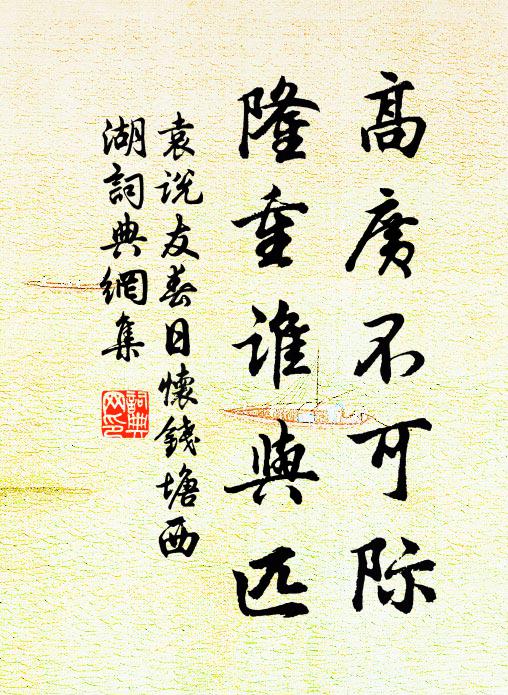 高廣不可際
隆重誰與匹
袁说友春日懷錢塘西
湖詞典網集
詞典
网印